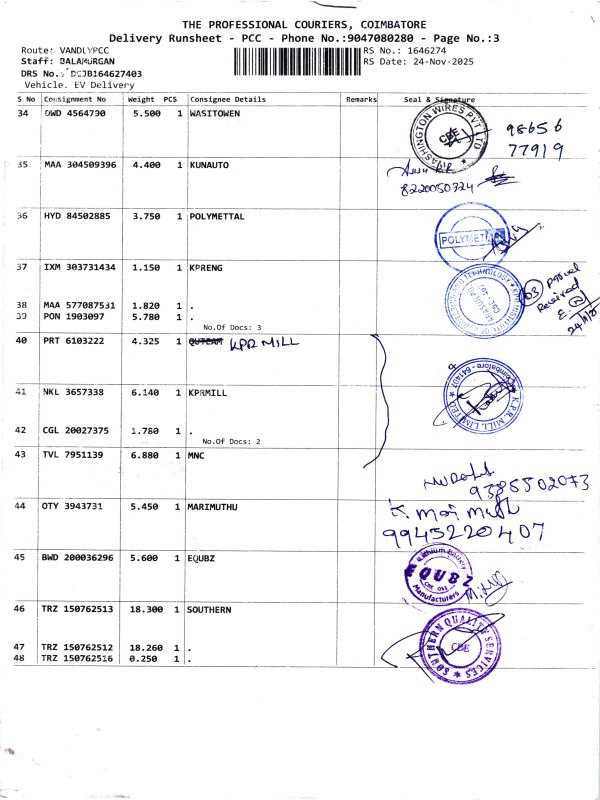 THE PROFESSIONAL COURIERS, COIMBATORE
Delivery Runsheet - PCC - Phone No.:9047080280 - Page No.:3
Route: VANDLYPCC
RS No.: 1646274
Staff: BALAMURGAN
RS Date: 24-Nov-2025
DRS No.: DCJB164627403
Vehicle. EV Delivery
S No Consignment No Weight PCS Consignee Details Remarks Seal & Signature
34 DWD 4564790 5.500 1 WASITOWEN
WASHINGTON WIRES PVT LTD
CBE
98656
77919
35 MAA 304509396 4.400 1 KUNAUTO
8220050324
36 HYD 84502885 3.750 1 POLYMETTAL
POLYMET
37 IXM 303731434 1.150 1 KPRENG
03 Parcel
Received
24/11/25
38 MAA 577087531 1.820 1 .
39 PON 1903097 5.780 1 .
No.Of Docs: 3
40 PRT 6103222 4.325 1 QUTEAM KPR MILL
41 NKL 3657338 6.140 1 KPRMILL
K.P.R. MILL LIMITED
Coimbatore - 641407
42 CGL 20027375 1.780 1 .
No.Of Docs: 2
43 TVL 7951139 6.880 1 MNC
9385502073
44 OTY 3943731 5.450 1 MARIMUTHU
9945220407
45 BWD 200036296 5.600 1 EQUBZ
Lithium Battery
QUBZ
Manufacturers
46 TRZ 150762513 18.300 1 SOUTHERN
SOUTHERN QUALITY SERVICES
CBE
47 TRZ 150762512 18.260 1 .
48 TRZ 150762516 0.250 1 .